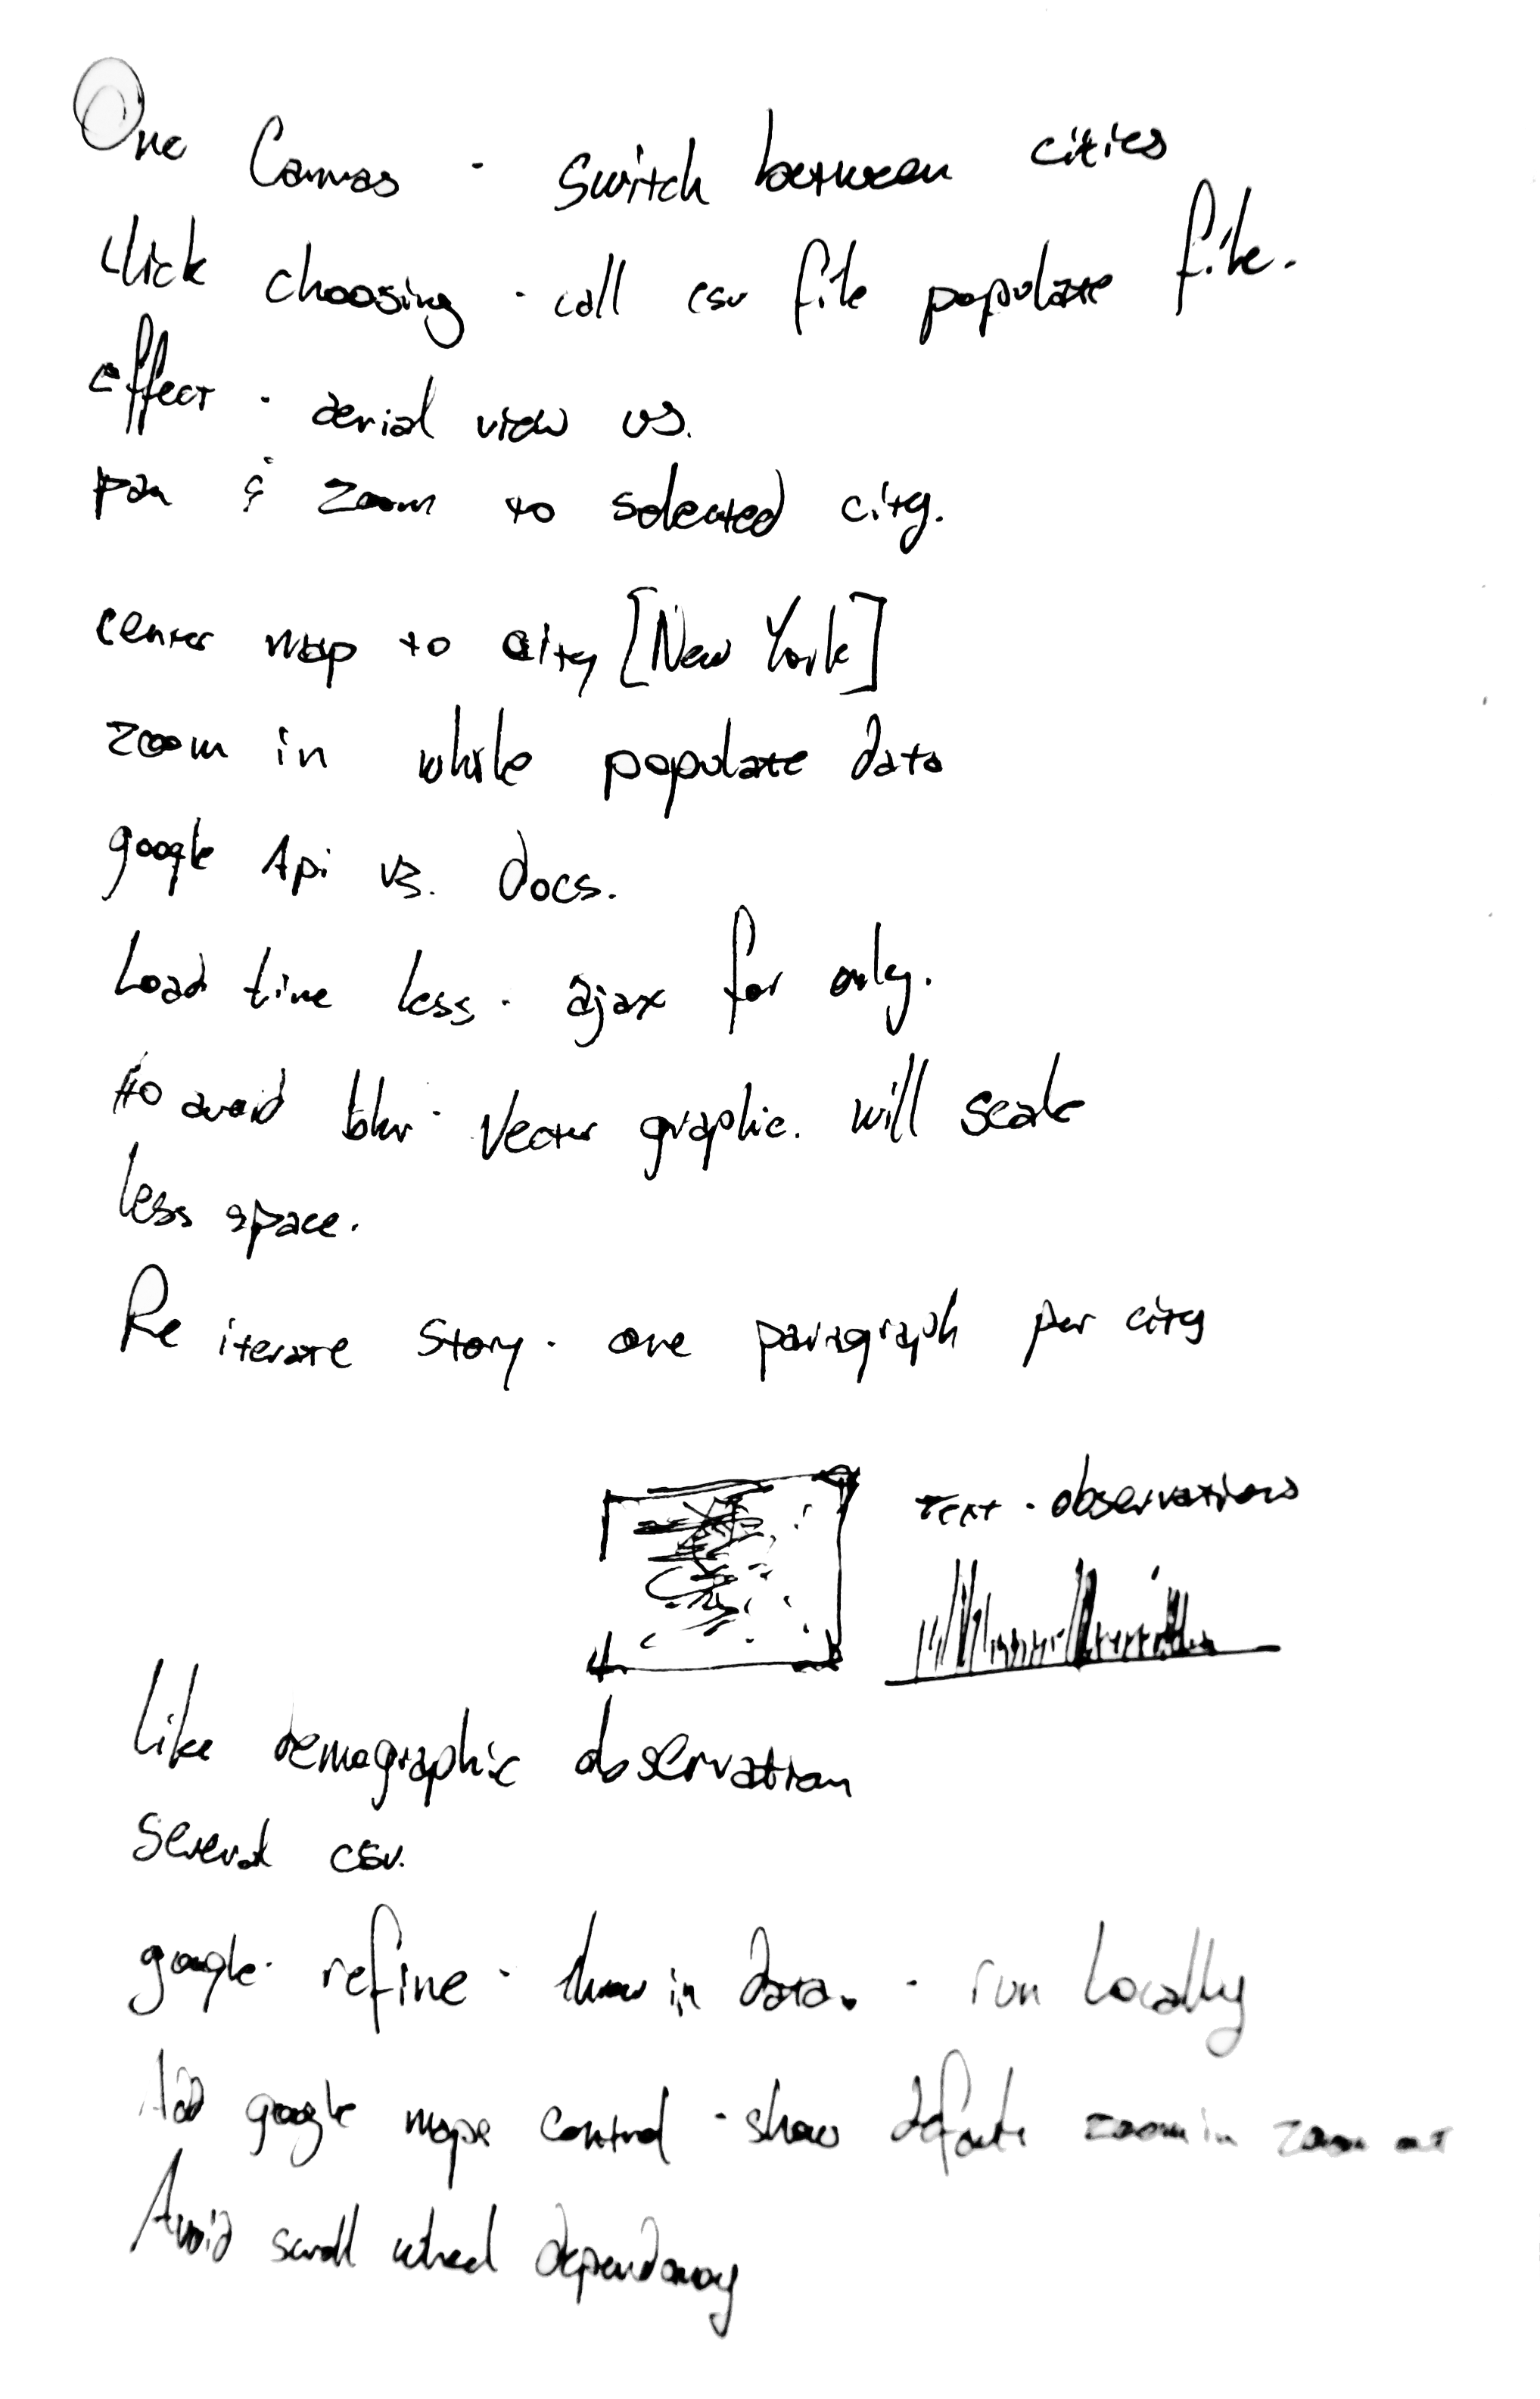 One Canvas - Switch between cities
click choosing - call csv file populate file.
effect - aerial view vs.
pan & zoom to selected city.
center map to city [New York]
zoom in while populate data
google Api vs. docs.
Load time less - ajax for only.
to avoid blur - Vector graphic. will scale
less space.
Re iterate story - one paragraph per city
Text - observations
like demographic observation
several csv.
google - refine - throw in data. - run locally
Add google maps control - show defaults zoom in zoom out
Avoid scroll wheel dependancy